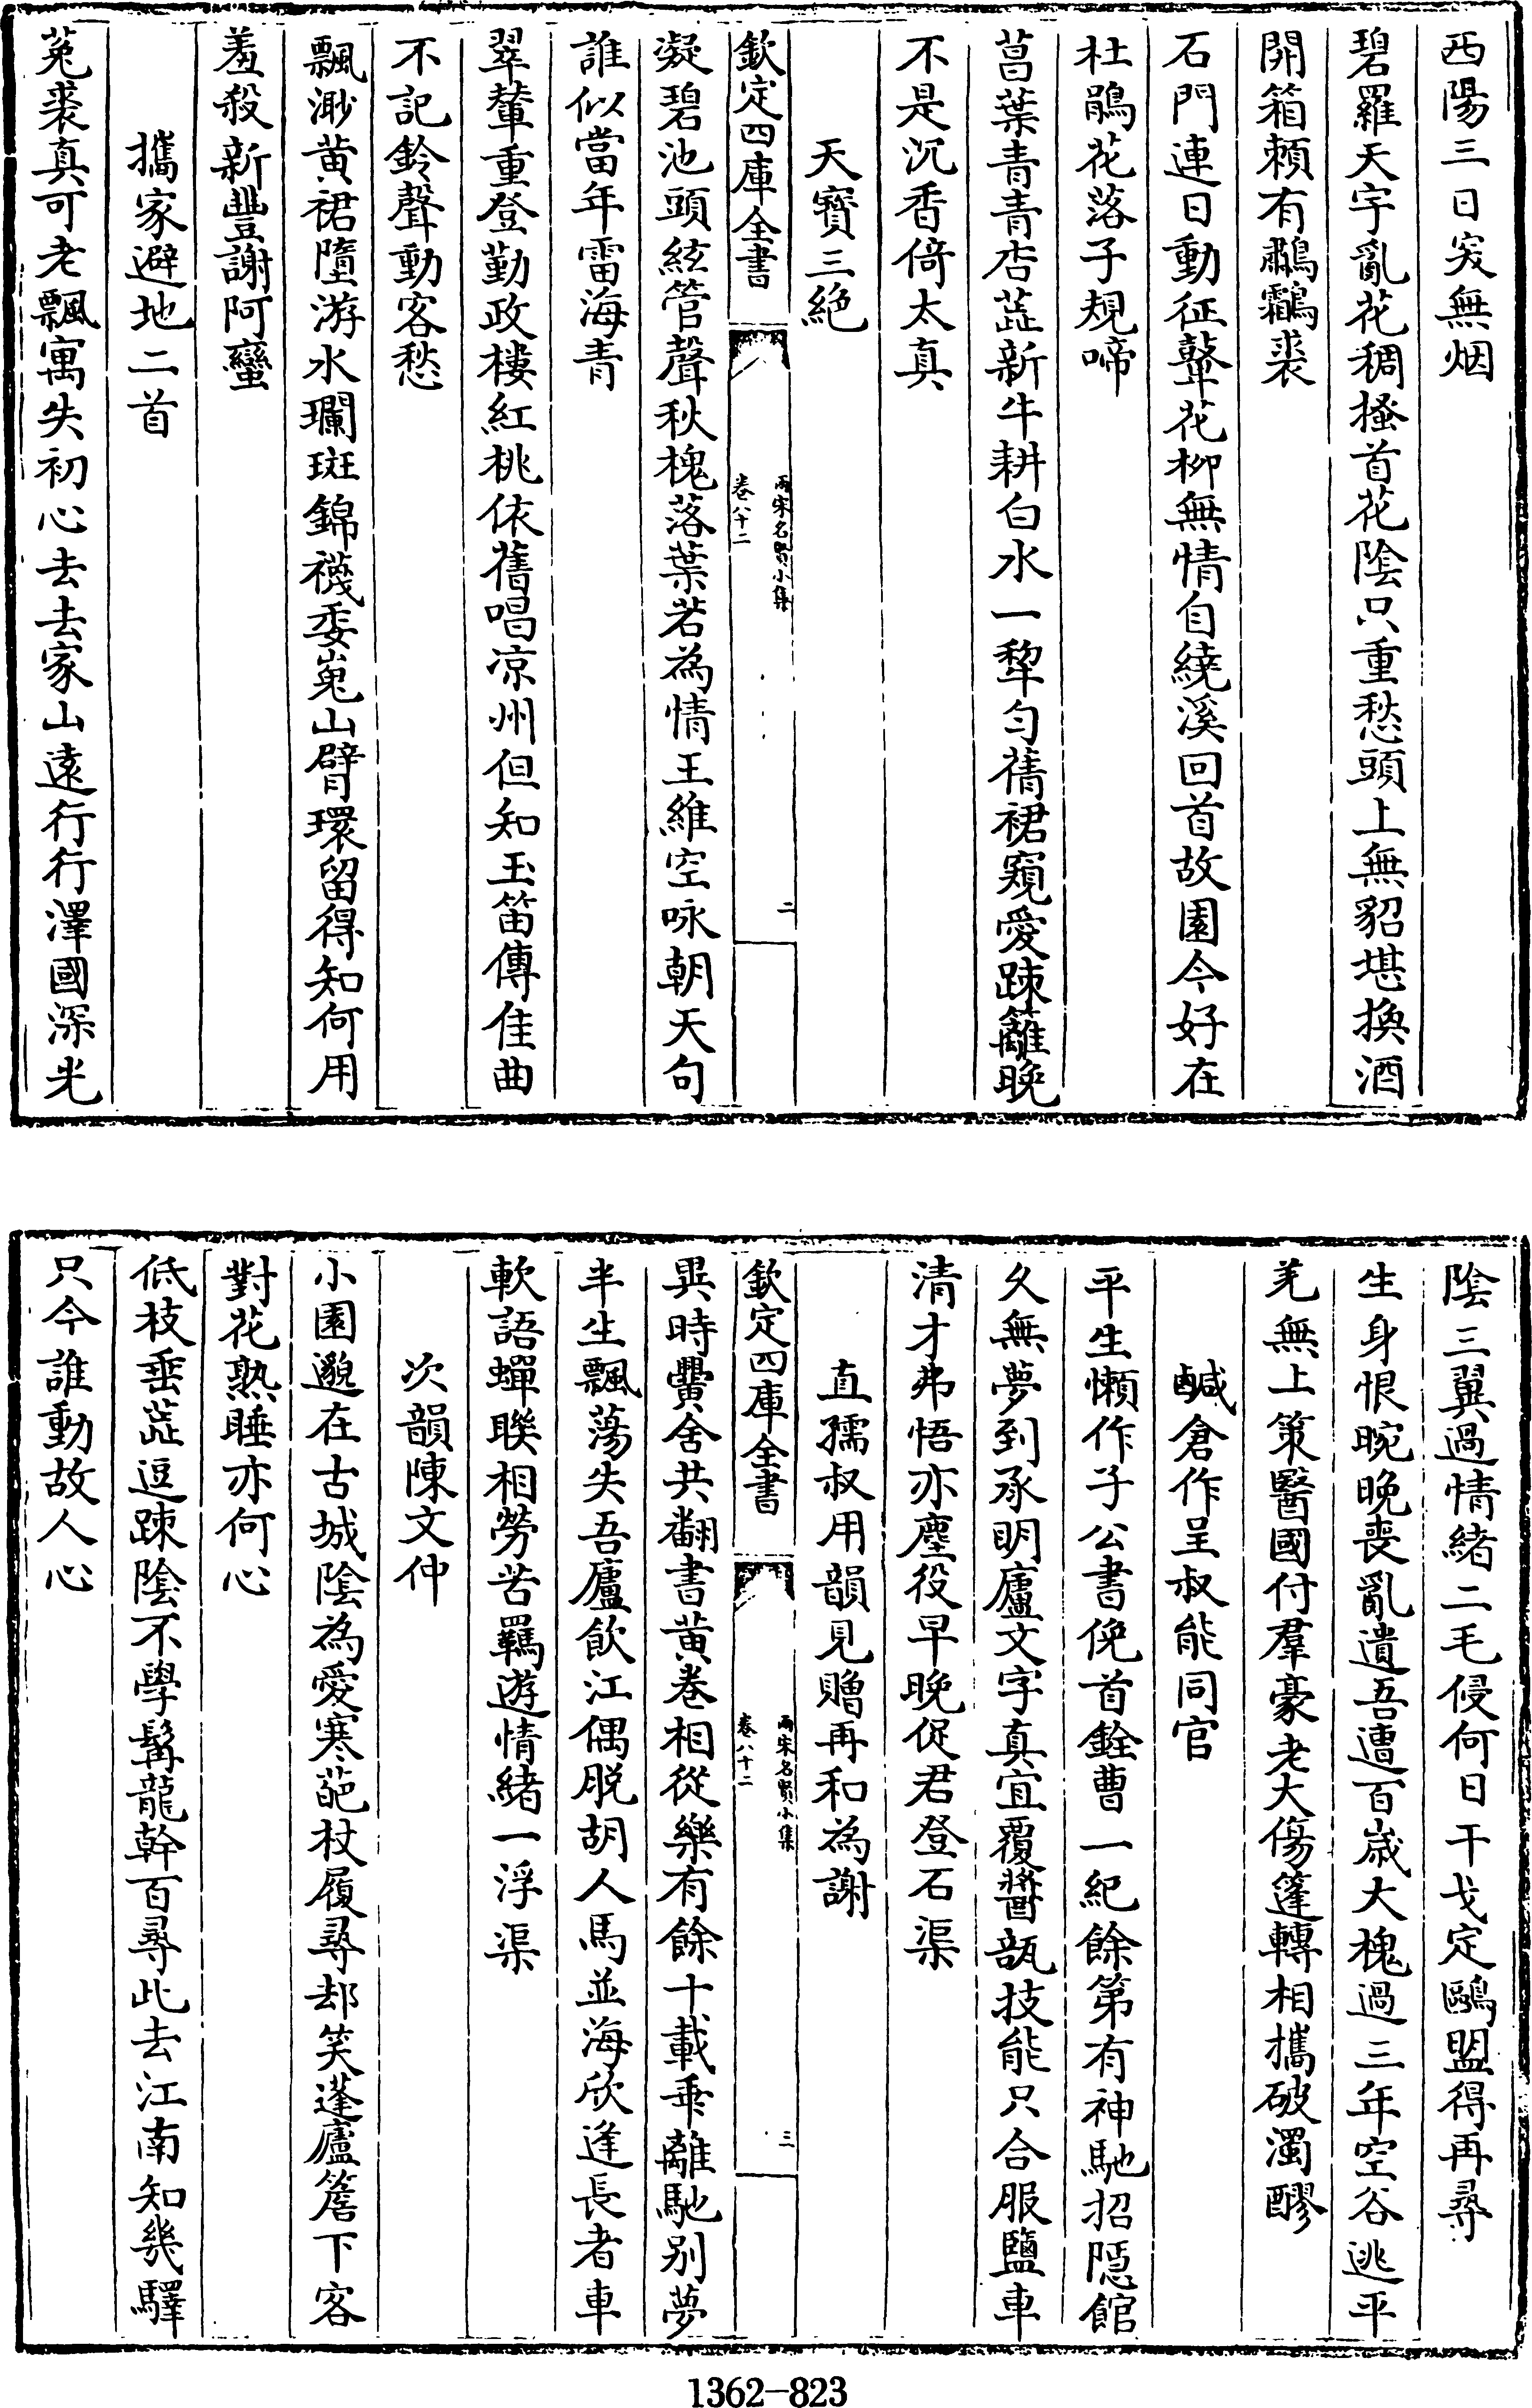 西陽三日突無烟
碧羅天宇亂花稠搔首花陰只重愁頭上無貂堪換酒
開箱賴有鷫鸘裘
石門連日動征鼙花柳無情自繞溪回首故園今好在
杜鵑花落子規啼
菖葉青青杏蕋新牛耕白水一犂匀蒨裙窺愛踈籬晚
不是沉香倚太真
天寶三絶
欽定四庫全書
兩宋名賢小集
卷八十二
二
凝碧池頭絃管聲秋槐落葉若為情王維空咏朝天句
誰似當年雷海青
翠輦重登勤政樓紅桃依舊唱凉州但知玉笛傳佳曲
不記鈴聲動客愁
飄渺黄裙墮游水斕斑錦襪委嵬山臂環留得知何用
羞殺新豐謝阿蠻
攜家避地二首
菟裘真可老飄寓失初心去去家山遠行行澤國深光
陰三翼過情緒二毛侵何日干戈定鷗盟得再尋
生身恨晼晚喪亂遺吾遭百歲大槐過三年空谷逃平
羌無上策醫國付羣豪老大傷蓬轉相攜破濁醪
鹹倉作呈叔能同官
平生懶作子公書俛首銓曹一紀餘第有神馳招隱館
久無夢到承明廬文字真宜覆醬瓿技能只合服鹽車
清才弗悟亦塵役早晚促君登石渠
直孺叔用韻見贈再和為謝
欽定四庫全書
兩宋名賢小集
卷八十二
三
異時黌舍共翻書黄卷相從樂有餘十載乖離馳别夢
半生飄蕩失吾廬飲江偶脱胡人馬並海欣逢長者車
軟語蟬聯相勞苦羈遊情緒一浮渠
次韻陳文仲
小園邈在古城陰為愛寒葩杖履尋却笑蓬廬簷下客
對花熟睡亦何心
低枝垂蕋逗踈陰不學髯龍幹百尋此去江南知幾驛
只今誰動故人心
1362-823